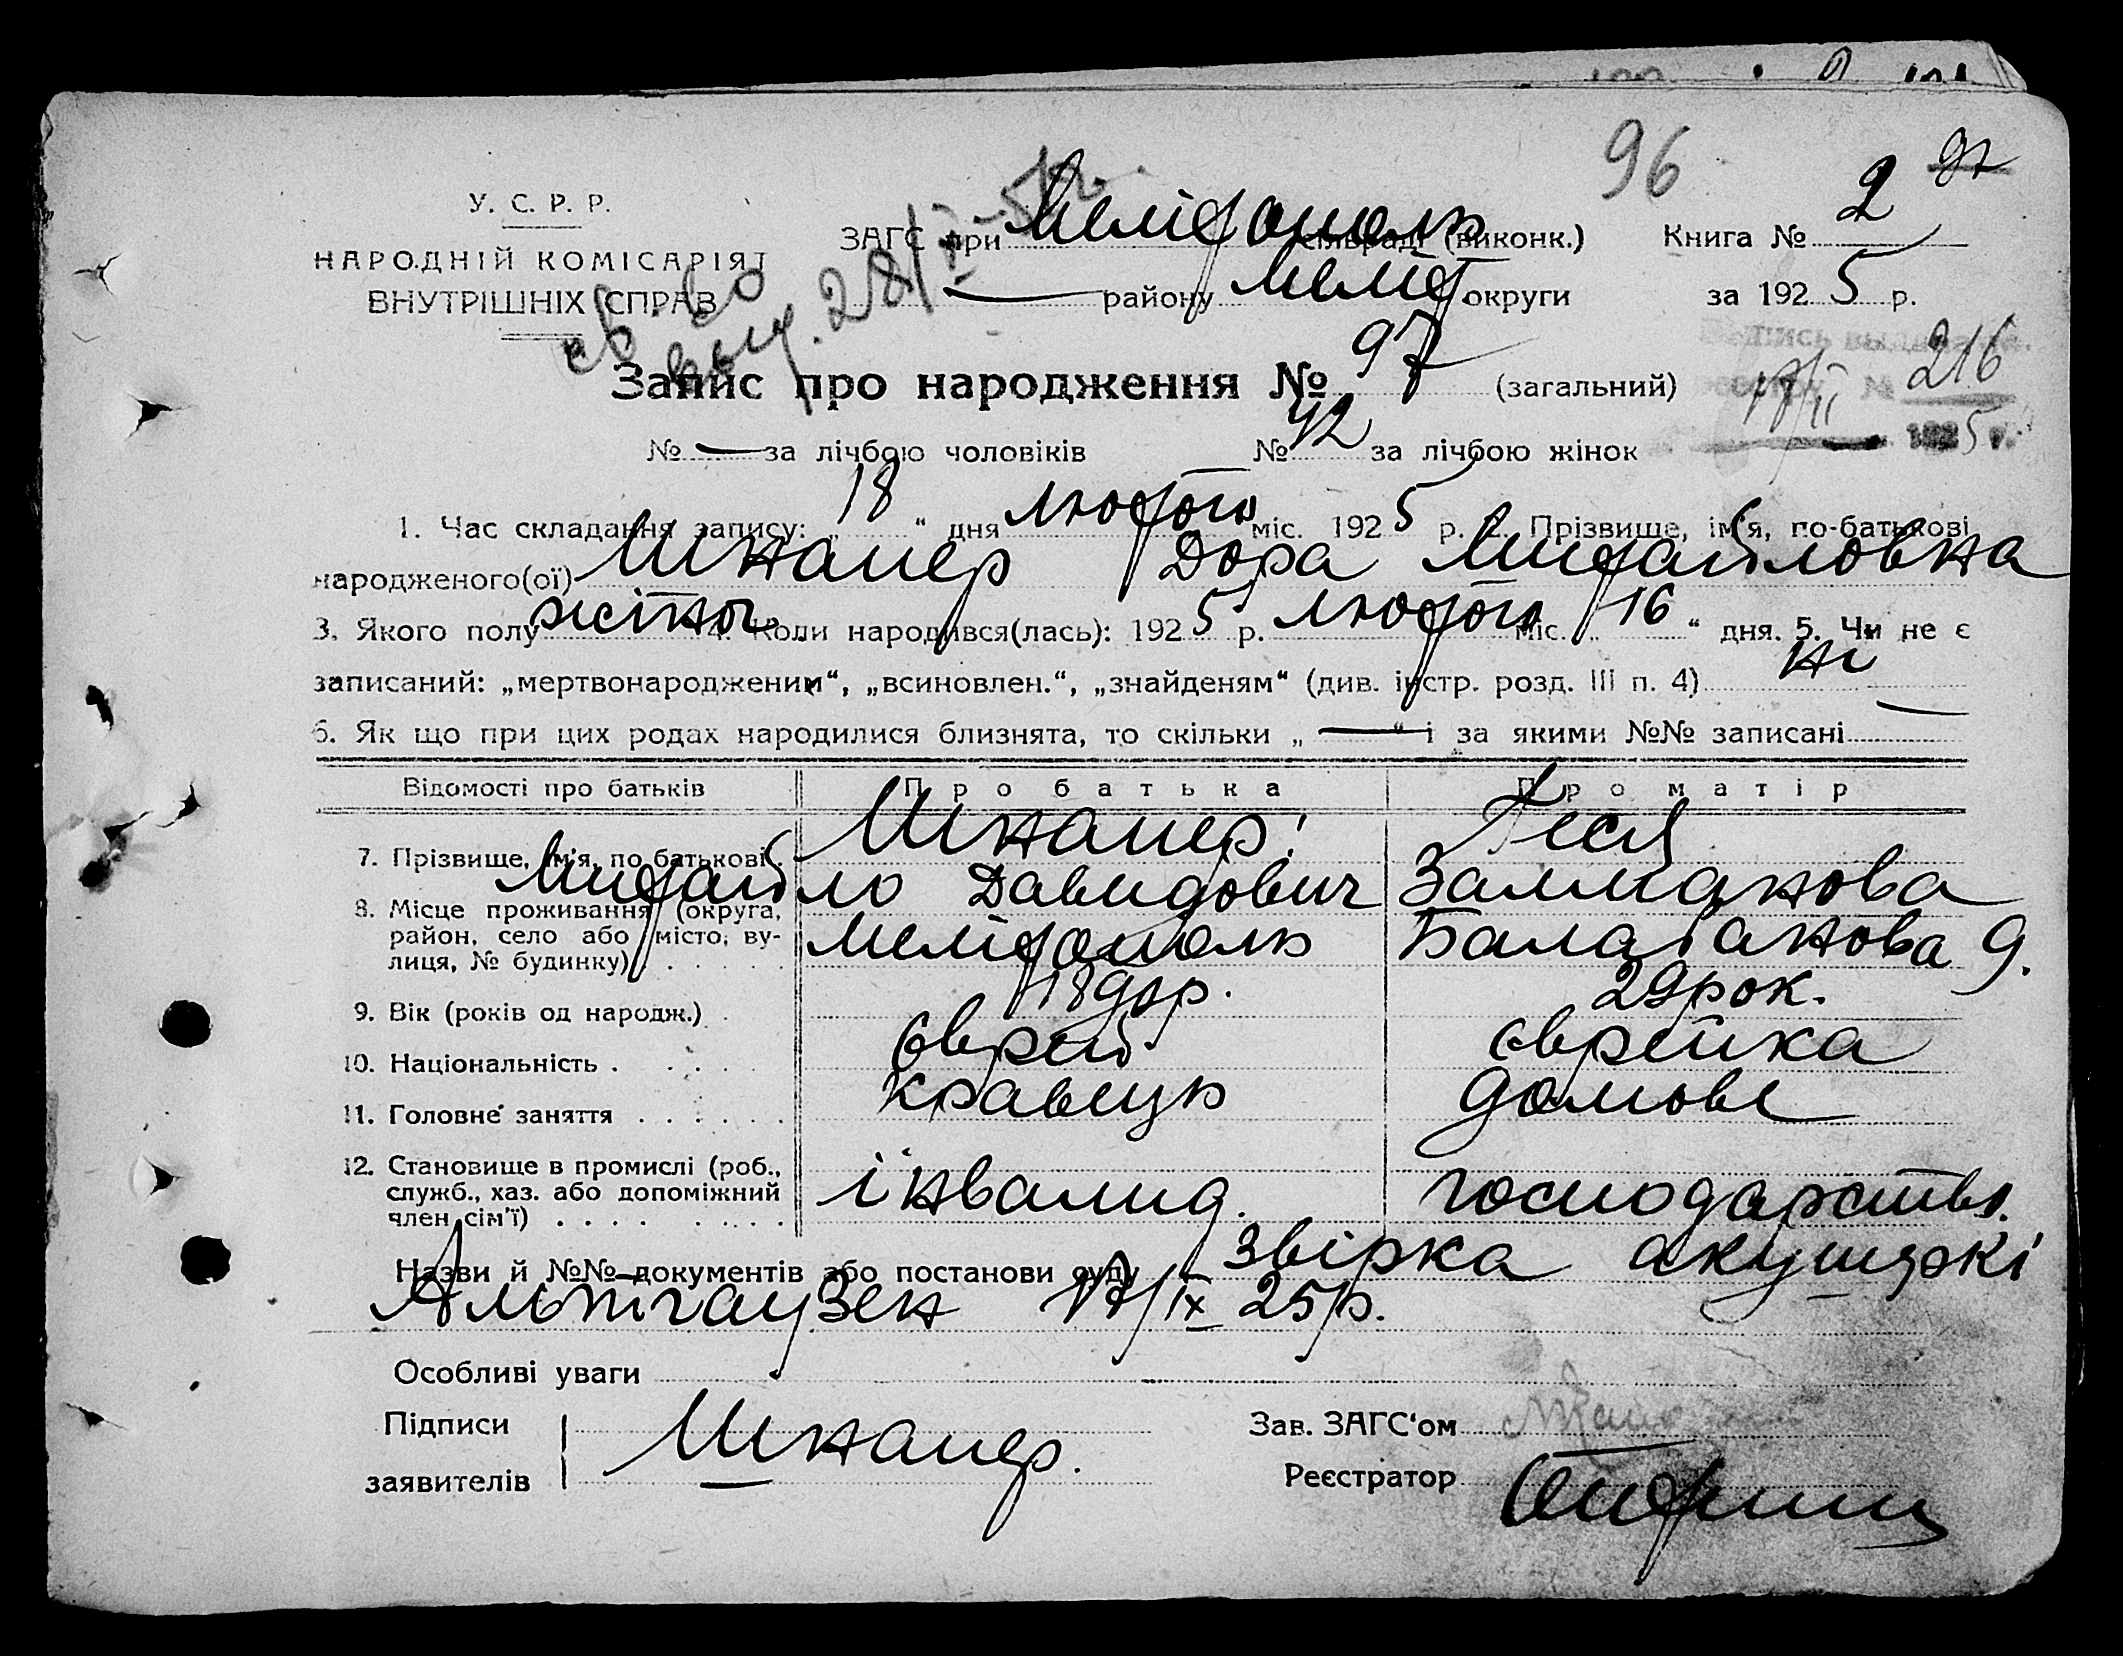 96
97
У. С. Р. Р.
НАРОДНІЙ КОМІСАРІЯТ
ВНУТРІШНІХ СПРАВ
ЗАГС при Мелітополь сільраді (виконк.) Книга № 2
— району Меліт округи за 1925 р.
св-во
выд. 28/
216
17/II 1925 г.
Запис про народження № 97 (загальний)
№ — за лічбою чоловіків № 42 за лічбою жінок
1. Час складання запису: „ 18 “ дня лютого міс. 1925 р. 2. Прізвище, ім'я, по-батькові
народженого(ої) Шнапер Дора Михайловна
3. Якого полу жіноч. 4. Коли народився(лась): 1925 р. лютого міс. „ 16 “ дня. 5. Чи не є
записаний: „мертвонародженим“, „всиновлен.“, „знайденям“ (див. інстр. розд. III п. 4) ні —
6. Як що при цих родах народилися близнята, то скільки „ — “ і за якими №№ записані
Відомості про батьків Про батька Про матір
7. Прізвище, ім'я, по батькові Шнапер Песя
Михайло Давидович
8. Місце проживання (округа,
район, село або місто, ву-
лиця, № будинку) Мелітополь
9. Вік (років од народж.) 29 рок.
10. Національність Єврей єврейка
11. Головне заняття Кравець домове
12. Становище в промислі (роб.,
служб., хаз. або допоміжний
член сім'ї) інвалид. господарство.
Назви й №№ документів або постанови суду Звірка акушеркі
Альтгаузен 17/IX 25 р.
Особливі уваги
Підписи
заявителів Шнапер.
Зав. ЗАГС'ом
Реєстратор